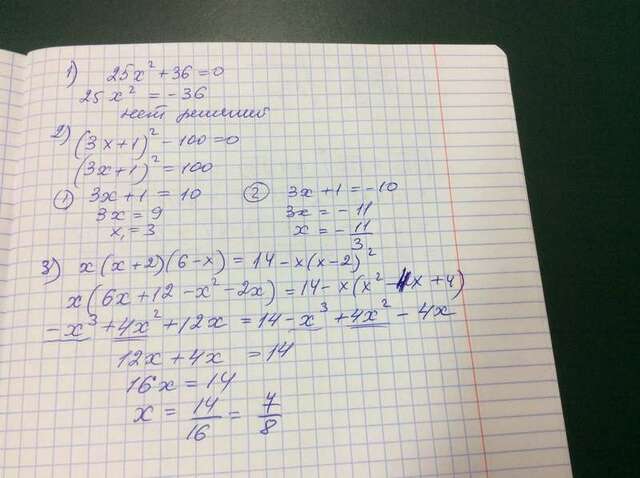 1) 25x² + 36 = 0
25x² = -36
нет решений
2) (3x+1)² - 100 = 0
(3x+1)² = 100
① 3x+1 = 10
3x = 9
x₁ = 3
② 3x+1 = -10
3x = -11
x = -11/3
3) x(x+2)(6-x) = 14 - x(x-2)²
x(6x+12-x²-2x) = 14 - x(x²-4x+4)
-x³+4x²+12x = 14-x³+4x²-4x
12x+4x = 14
16x = 14
x = 14/16 = 7/8